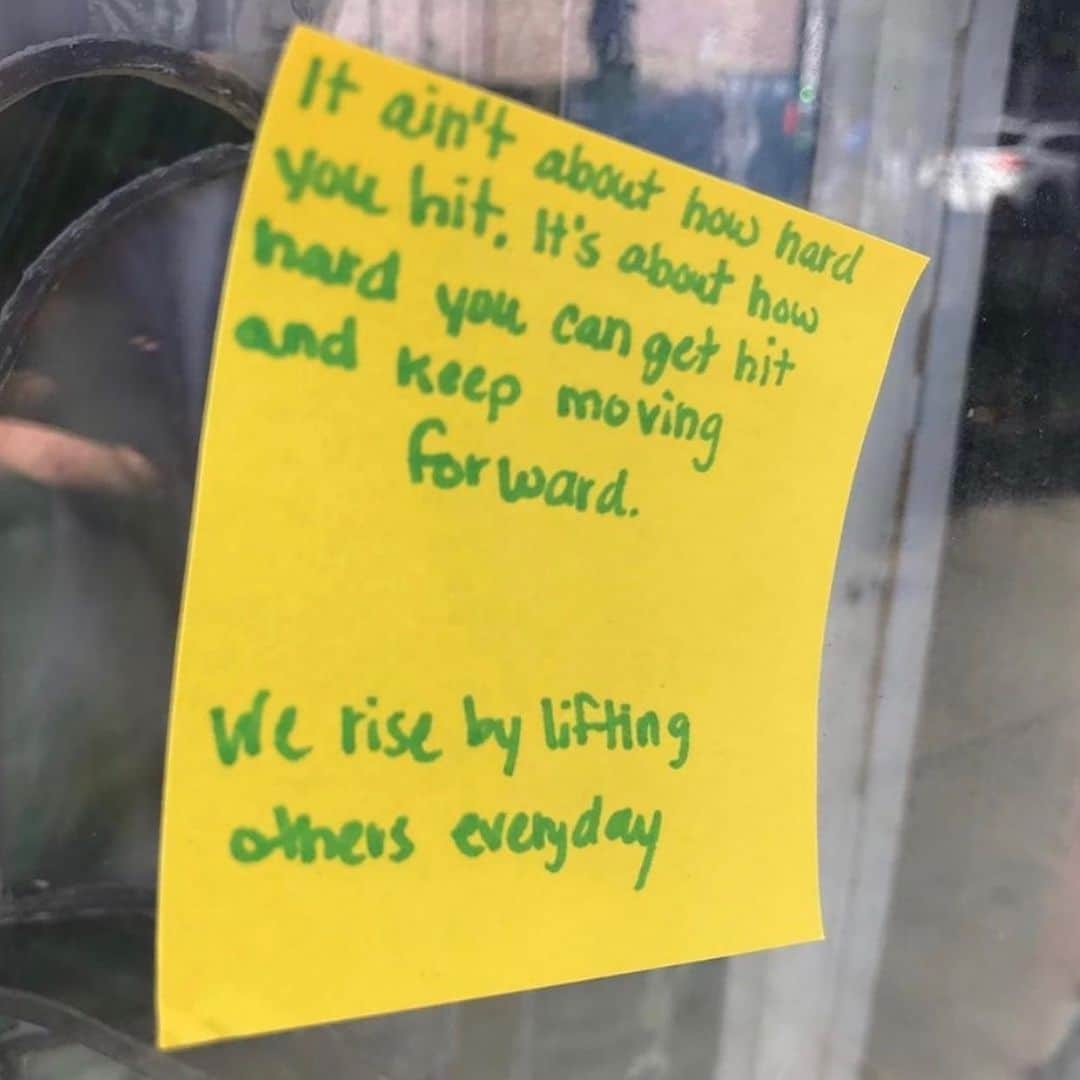 It ain't about how hard
you hit. It's about how
hard you can get hit
and keep moving
forward.
We rise by lifting
others everyday